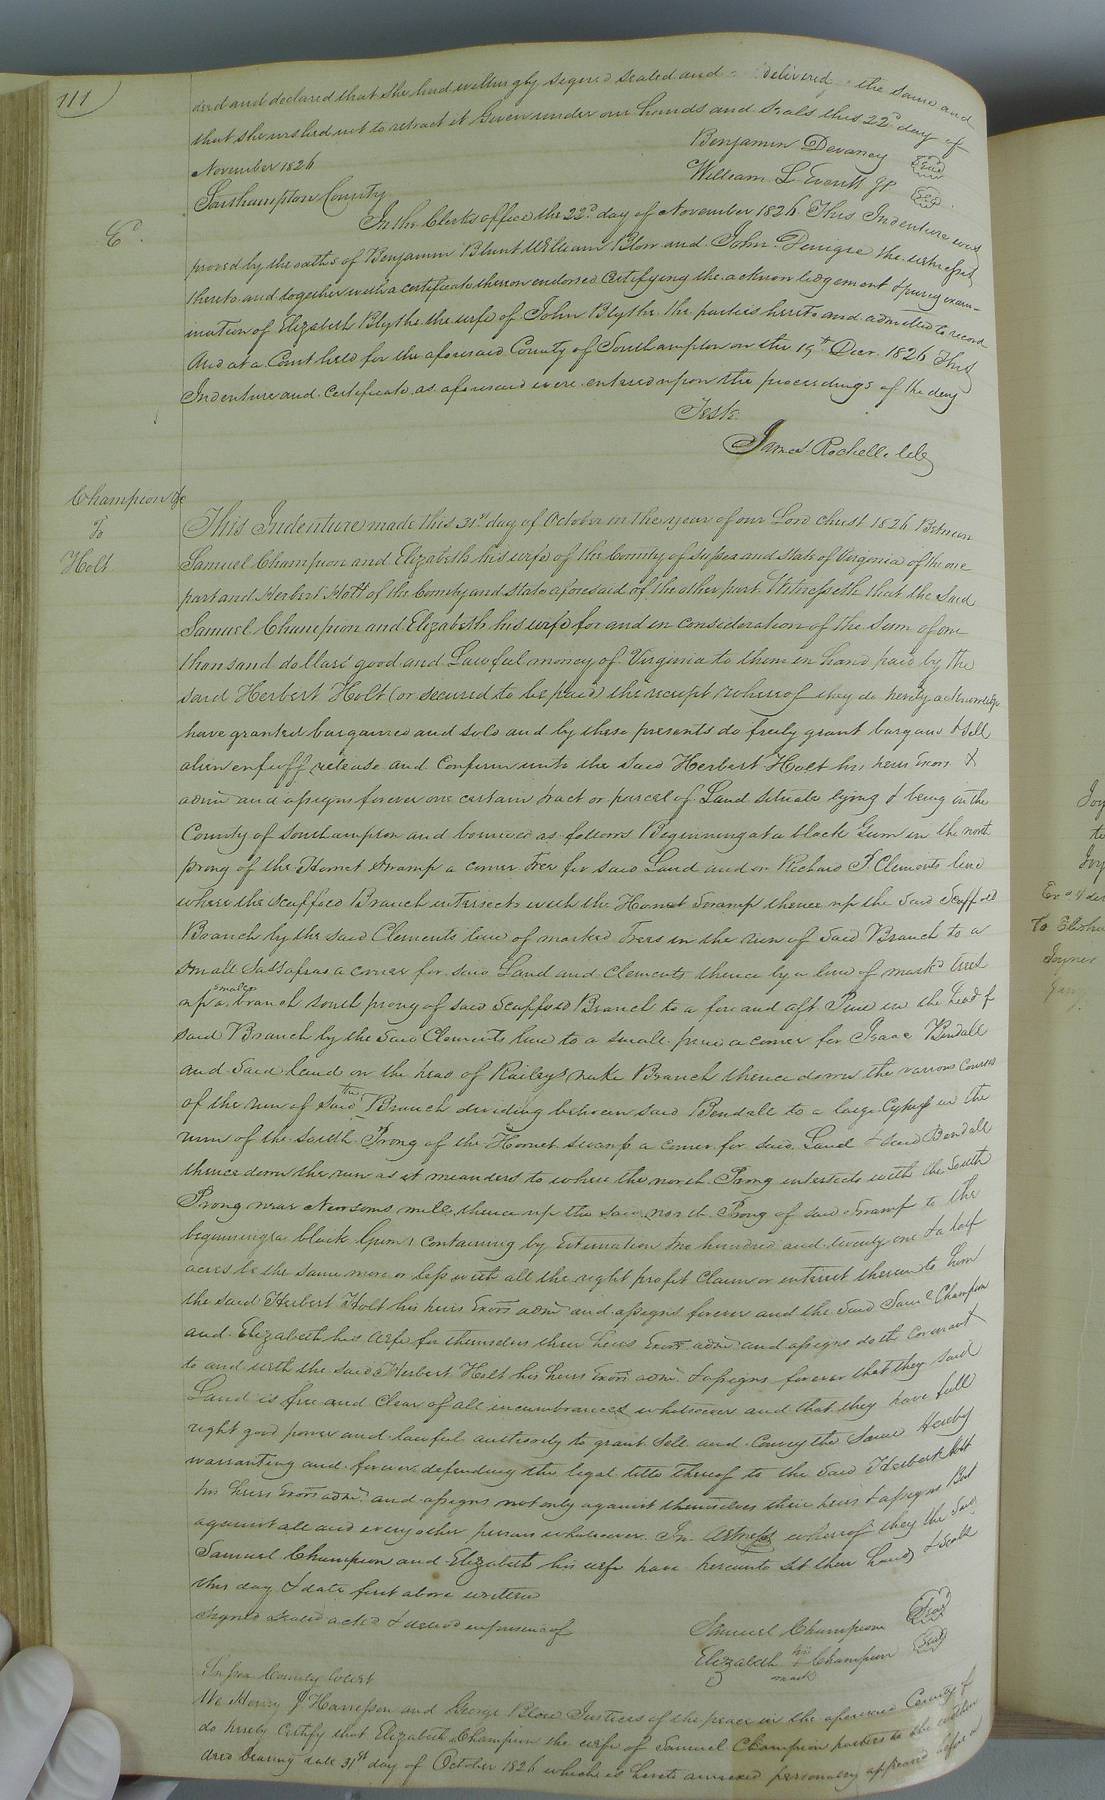 111
deed and declared that she had willingly signed sealed and delivered the same and
that she wished not to retract it Given under our hands and seals this 22d day of
November 1826
Benjamin Devaney Seal
William L Everitt JP Seal
Southampton County
In the Clerks office the 22d day of November 1826 This Indenture was
proved by the oaths of Benjamin Blunt William Blow and John the witnesses
thereto and together with a certificate thereon endorsed Certifying the acknowledgement & privy exam-
ination of Elizabeth Blythe the wife of John Blythe the parties hereto and admitted to record
And at a Court held for the aforesaid County of Southampton on the 19th Decr. 1826 This
Indenture and Certificate as aforesaid were entered upon the proceedings of the day
Teste
James Rochelle Clk
Champion &c
To
Holt
This Indenture made this 31st day of October in the year of our Lord Christ 1826 Between
Samuel Champion and Elizabeth his wife of the County of Sussex and State of Virginia of the one
part and Herbert Holt of the County and State aforesaid of the other part Witnesseth that the Said
Samuel Champion and Elizabeth his wife for and in consideration of the Sum of one
thousand dollars good and Lawful money of Virginia to them in hand paid by the
said Herbert Holt (or secured to be paid) the receipt whereof they do hereby acknowledge
have granted bargained and sold and by these presents do freely grant bargain & sell
alien enfeoff release and Confirm unto the said Herbert Holt his heirs Exors &
admr and assigns forever one certain tract or parcel of Land situate lying & being in the
County of Southampton and bounded as follows Beginning at a black Gum in the north
prong of the Hornet Swamp a corner Tree for said Land and on Richard P. Clements line
where the scaffold Branch intersects with the Hornet Swamp thence up the Said Scaffold
Branch by the said Clements line of marked Trees in the run of Said Branch to a
small Sassafras a corner for said Land and Clements thence by a line of markd trees
up a small branch south prong of said Scaffold Branch to a fore and aft Pine in the head of
said Branch by the Said Clements line to a small pine a corner for Isaac Bendall
and Said land on the head of Raileys Branch thence down the various courses
of the run of Said the Branch dividing between said Bendall to a large Cypress in the
run of the South Prong of the Hornet swamp a corner for said Land & said Bendall
thence down the run as it meanders to where the north Prong intersects with the South
Prong near Newsoms mill, thence up the said north Prong of said Swamp to the
beginning a black Gum, containing by Estimation two hundred and twenty one & a half
acres be the same more or less with all the right profit Claim or interest therein to him
the said Herbert Holt his heirs Exors admr and assigns forever and the Said Saml Champion
and Elizabeth his wife for themselves their heirs Exors admr and assigns doth Covenant
to and with the said Herbert Holt his heirs Exors admr & assigns forever that they said
Land is free and Clear of all incumbrances whatsoever and that they have full
right good power and lawful authority to grant Sell and Convey the Same Hereby
warranting and forever defending the legal title thereof to the Said Herbert Holt
his heirs Exors admr and assigns not only against themselves their heirs & assigns But
against all and every other person whatsoever. In Witness whereof they the Said
Samuel Champion and Elizabeth his wife have hereunto Set their hands & Seals
this day & date first above written
Signed Sealed ackd & deliverd in presence of
Samuel Champion Seal
Elizabeth her + mark Champion Seal
Sussex County Court
We Henry J Harrison and George Blow Justices of the peace in the aforesaid County of
do hereby Certify that Elizabeth Champion the wife of Samuel Champion parties to the within
deed bearing date 31st day of October 1826 which is hereto annexed personally appeared before us